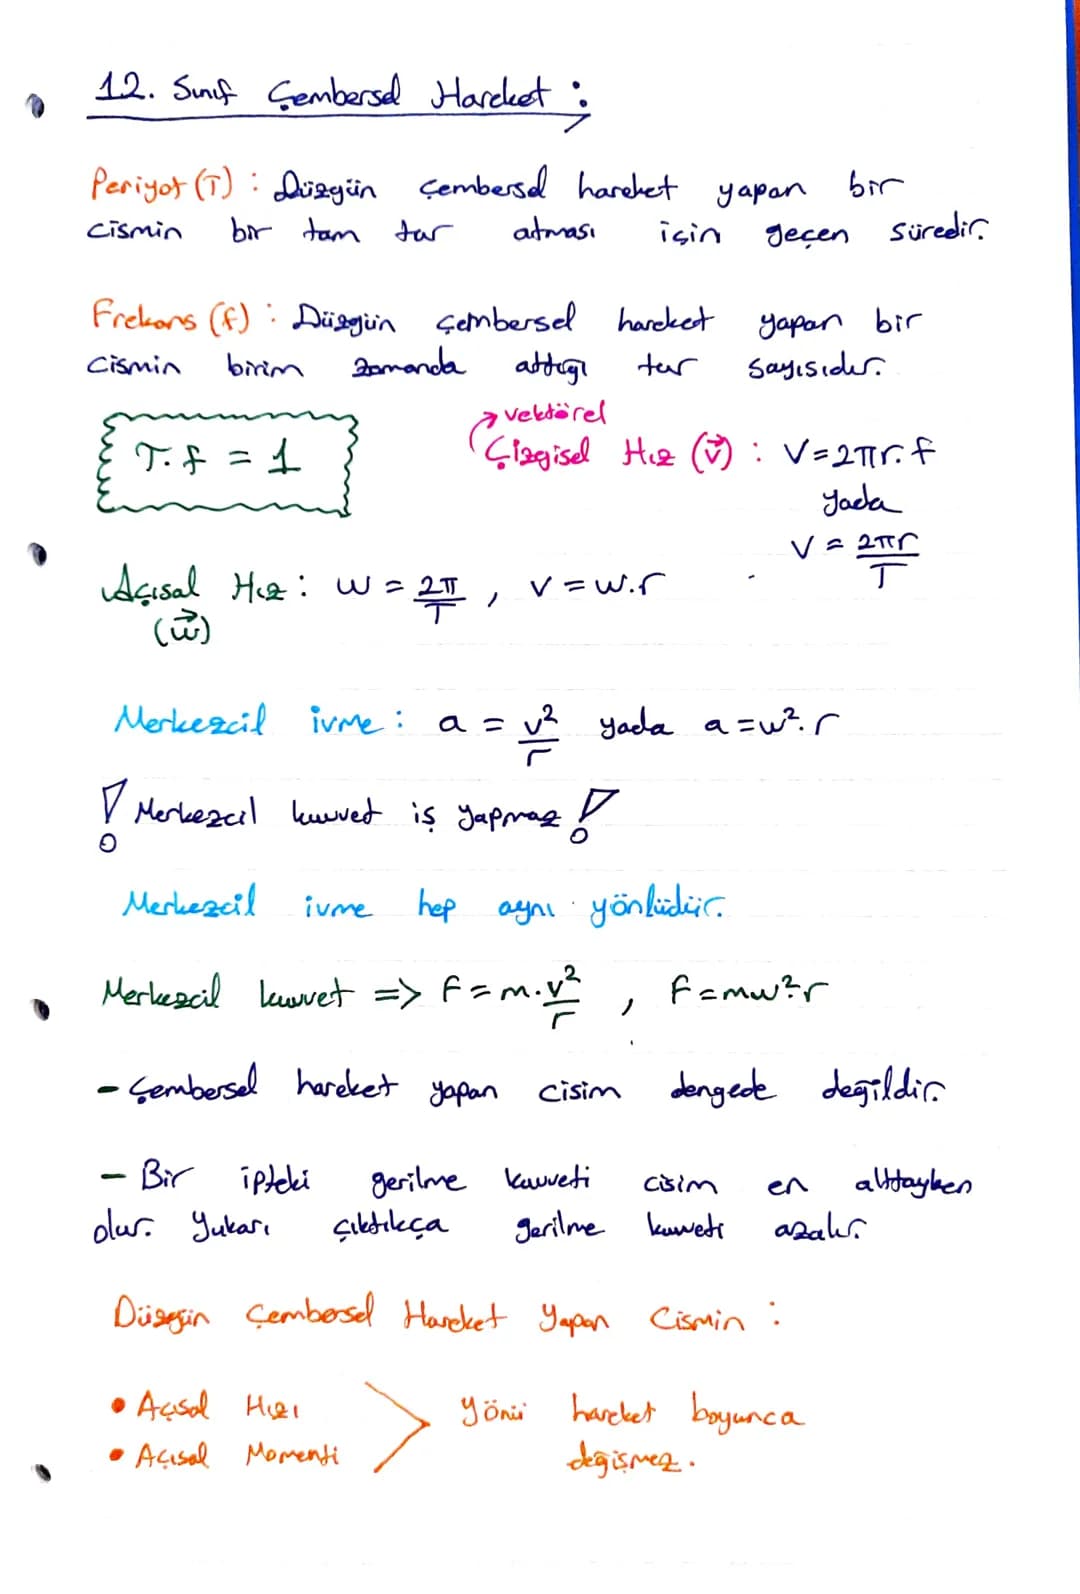 12. Sınıf Çembersel Hareket :
Periyot (T) : Düzgün çembersel hareket yapan bir
cismin bir tam tur atması için geçen süredir.
Frekans (f) : Düzgün çembersel hareket yapan bir
cismin birim zamanda attığı tur sayısıdır.
T.f = 1
vektörel
Çizgisel Hız (v⃗) : V=2πr.f
yada
V = 2πr/T
Açısal Hız : w = 2π/T , v = w.r
(w⃗)
Merkezcil ivme : a = v²/r yada a=w².r
! Merkezcil kuvvet iş yapmaz !
Merkezcil ivme hep aynı yönlüdür.
Merkezcil kuvvet => F=m.v²/r , F=mw²r
- Çembersel hareket yapan cisim dengede değildir.
- Bir ipteki gerilme kuvveti cisim en alttayken
olur. Yukarı çıktıkça gerilme kuvveti azalır.
Düzgün Çembersel Hareket Yapan Cismin :
• Açısal Hızı
• Açısal Momenti
> yönü hareket boyunca
değişmez.